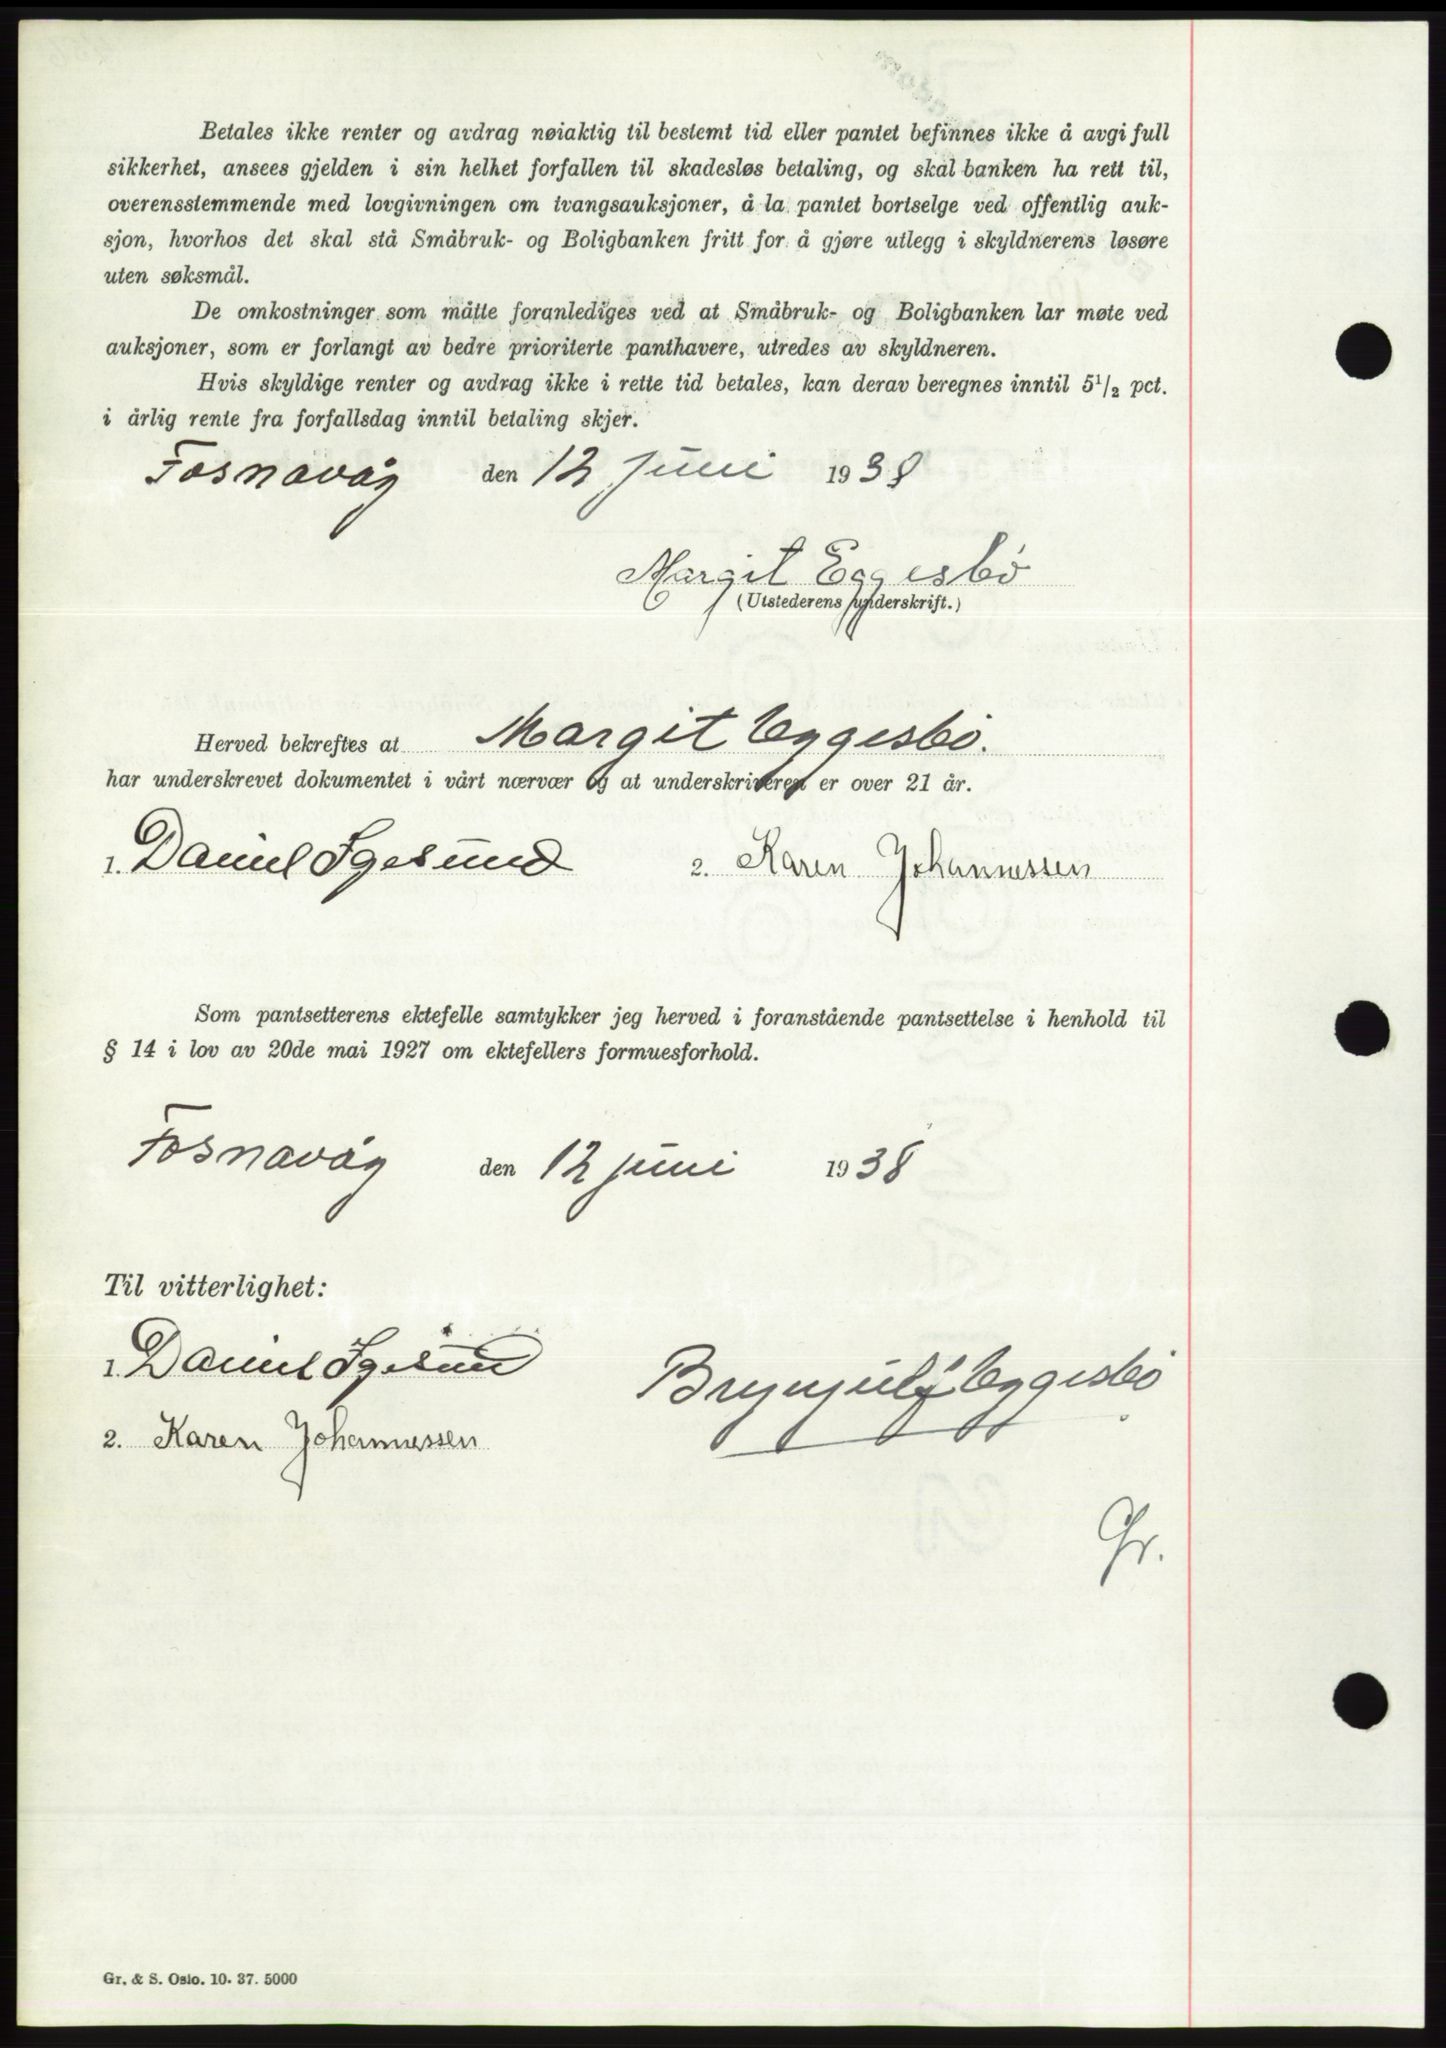 Betales ikke renter og avdrag nøiaktig til bestemt tid eller pantet befinnes ikke å avgi full
sikkerhet, ansees gjelden i sin helhet forfallen til skadesløs betaling, og skal banken ha rett til,
overensstemmende med lovgivningen om tvangsauksjoner, å la pantet bortselge ved offentlig auk-
sjon, hvorhos det skal stå Småbruk- og Boligbanken fritt for å gjøre utlegg i skyldnerens løsøre
uten søksmål.
De omkostninger som måtte foranlediges ved at Småbruk- og Boligbanken lar møte ved
auksjoner, som er forlangt av bedre prioriterte panthavere, utredes av skyldneren.
Hvis skyldige renter og avdrag ikke i rette tid betales, kan derav beregnes inntil 5 1/2 pct.
i årlig rente fra forfallsdag inntil betaling skjer.
Fosnavåg den 12 juni 1938
Margit Eggesbö
(Utstederens underskrift.)
Herved bekreftes at Margit Eggesbö.
har underskrevet dokumentet i vårt nærvær og at underskriveren er over 21 år.
1. Daniel Igesund 2. Karen Johannessen
Som pantsetterens ektefelle samtykker jeg herved i foranstående pantsettelse i henhold til
§ 14 i lov av 20de mai 1927 om ektefellers formuesforhold.
Fosnavåg den 12 juni 1938
Til vitterlighet:
1. Daniel Igesund
Brynjulf Eggesbö
2. Karen Johannessen
Gr.
Gr. & S. Oslo. 10. 37. 5000